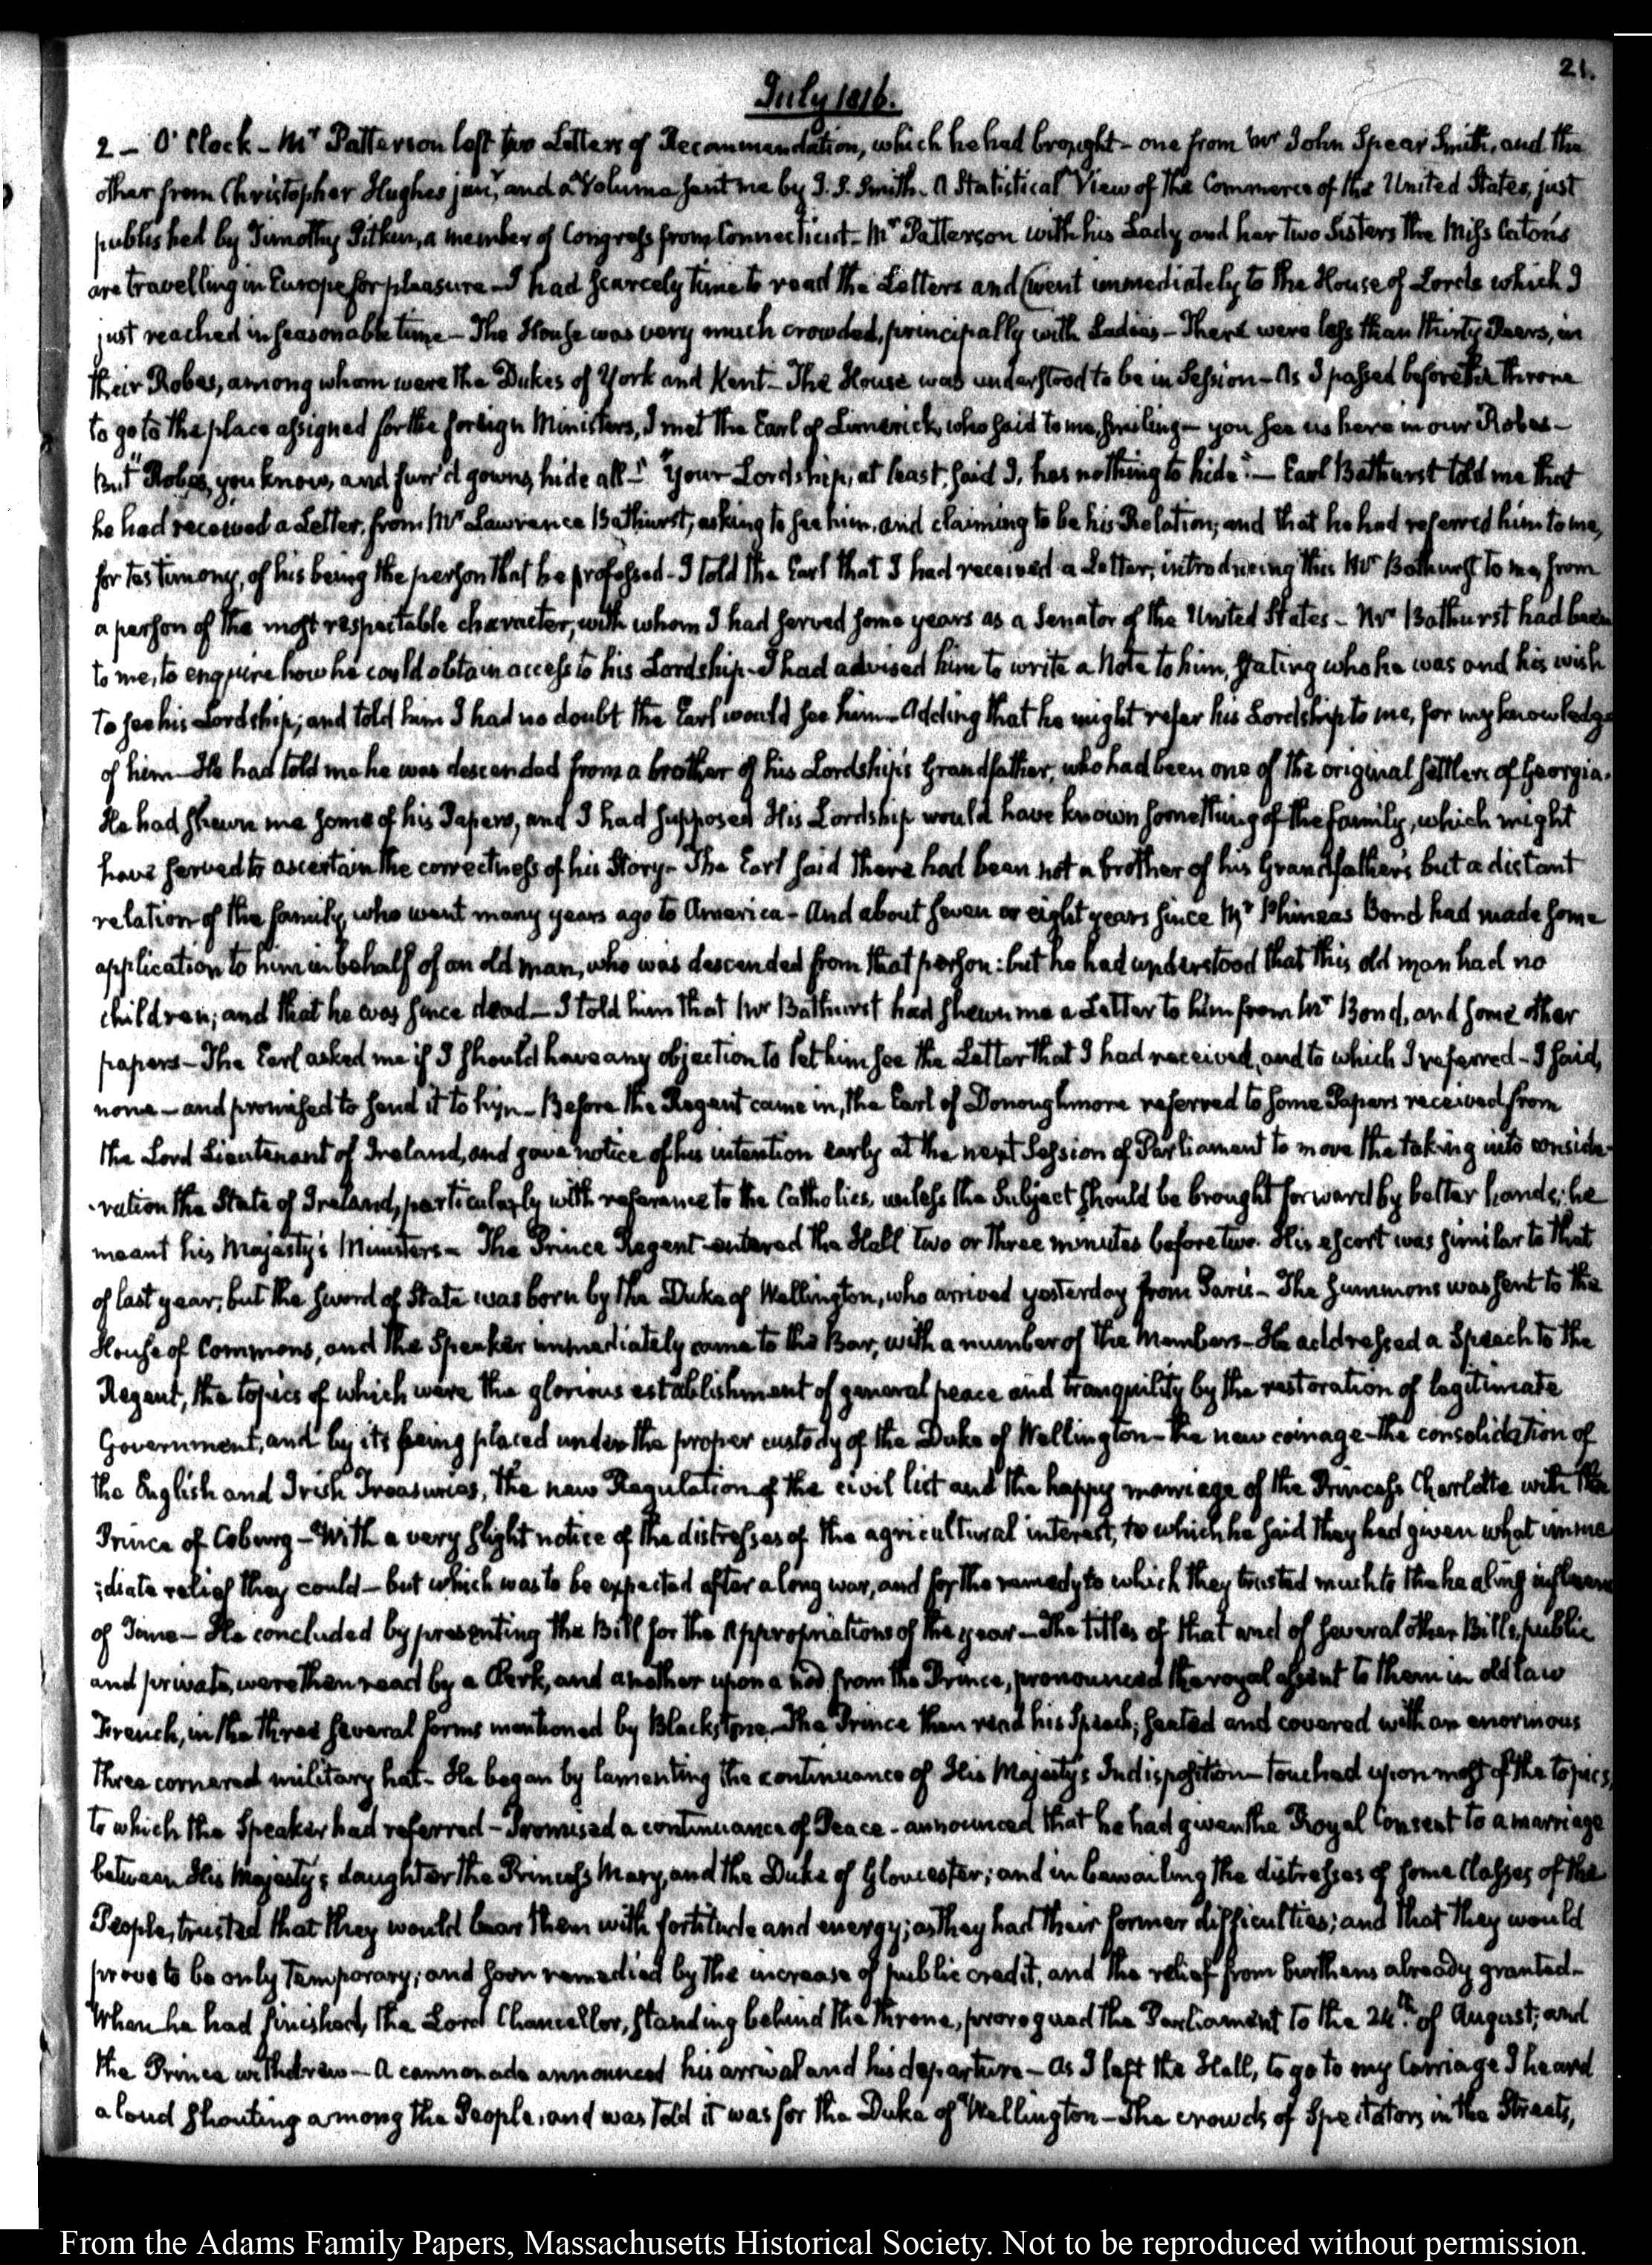 21.
July 1816.
2 – O'Clock – Mr Patterson left two Letters of Recommendation, which he had brought – one from Mr John Spear Smith, and the
other from Christopher Hughes junr, and a Volume sent me by J. S. Smith. A Statistical View of the Commerce of the United States, just
published by Timothy Pitkin, a member of Congress from Connecticut – Mr Patterson with his Lady and her two Sisters the Miss Caton's
are travelling in Europe for pleasure – I had scarcely time to read the Letters and went immediately to the House of Lords which I
just reached in seasonable time – The House was very much crowded, principally with Ladies – There were less than thirty Peers, in
their Robes, among whom were the Dukes of York and Kent – The House was understood to be in Session – As I passed before the throne
to go to the place assigned for the foreign Ministers, I met the Earl of Limerick, who said to me, smiling – you see us here in our Robes –
But "Robes, you know, and furr'd gowns, hide all –" "Your Lordship, at least, said I, has nothing to hide" – Earl Bathurst told me that
he had received a Letter, from Mr Lawrence Bathurst, asking to see him, and claiming to be his Relation; and that he had referred him to me,
for testimony, of his being the person that he professed – I told the Earl that I had received a Letter, introducing this Mr Bathurst to me, from
a person of the most respectable character, with whom I had served some years as a Senator of the United States – Mr Bathurst had been
to me, to enquire how he could obtain access to his Lordship – I had advised him to write a Note to him, stating who he was and his wish
to see his Lordship; and told him I had no doubt the Earl would see him – Adding that he might refer his Lordship to me, for my knowledge
of him – He had told me he was descended from a brother of his Lordship's Grandfather, who had been one of the original settlers of Georgia.
He had shewn me some of his Papers, and I had supposed His Lordship would have known something of the family, which might
have served to ascertain the correctness of his Story – The Earl said there had been not a brother of his Grandfather's but a distant
relation of the family, who went many years ago to America – And about seven or eight years since Mr Phineas Bond had made some
application to him in behalf of an old man, who was descended from that person: but he had understood that this old man had no
children; and that he was since dead – I told him that Mr Bathurst had shewn me a Letter to him from Mr Bond, and some other
papers – The Earl asked me if I should have any objection to let him see the Letter that I had received, and to which I referred – I said,
none – and promised to send it to him – Before the Regent came in, the Earl of Donoughmore referred to some Papers received from
the Lord Lieutenant of Ireland, and gave notice of his intention early at the next Session of Parliament to move the taking into conside-
-ration the State of Ireland, particularly with reference to the Catholics, unless the Subject should be brought forward by better hands; he
meant his Majesty's Ministers – The Prince Regent entered the Hall two or three minutes before two. His escort was similar to that
of last year; but the sword of State was born by the Duke of Wellington, who arrived yesterday from Paris – The summons was sent to the
House of Commons, and the Speaker immediately came to the Bar, with a number of the Members – He addressed a Speech to the
Regent, the topics of which were the glorious establishment of general peace and tranquility by the restoration of legitimate
Government, and by its being placed under the proper custody of the Duke of Wellington – the new coinage – the consolidation of
the English and Irish Treasuries, the new Regulation of the civil list and the happy marriage of the Princess Charlotte with the
Prince of Coburg – With a very slight notice of the distresses of the agricultural interest, to which he said they had given what imme
:diate relief they could – but which was to be expected after a long war, and for the remedy to which they trusted much to the healing influence
of Time – He concluded by presenting the Bill for the Appropriations of the year – The titles of that and of several other Bills, public
and private, were then read by a Clerk, and another upon a nod from the Prince, pronounced the royal assent to them in old law
French, in the three several forms mentioned by Blackstone – The Prince then read his Speech; seated and covered with an enormous
three cornered military hat – He began by lamenting the continuance of His Majesty's Indisposition – touched upon most of the topics,
to which the Speaker had referred – Promised a continuance of Peace – announced that he had given the Royal Consent to a marriage
between His Majesty's daughter the Princess Mary, and the Duke of Gloucester; and in bewailing the distresses of some Classes of the
People, trusted that they would bear them with fortitude and energy; as they had their former difficulties; and that they would
prove to be only temporary; and soon remedied by the increase of public credit, and the relief from burthens already granted –
When he had finished, the Lord Chancellor, standing behind the throne, prorogued the Parliament to the 24th of August; and
the Prince withdrew – A cannonade announced his arrival and his departure – As I left the Hall, to go to my Carriage I heard
a loud shouting among the People, and was told it was for the Duke of Wellington – The crowds of Spectators in the Streets,
From the Adams Family Papers, Massachusetts Historical Society. Not to be reproduced without permission.